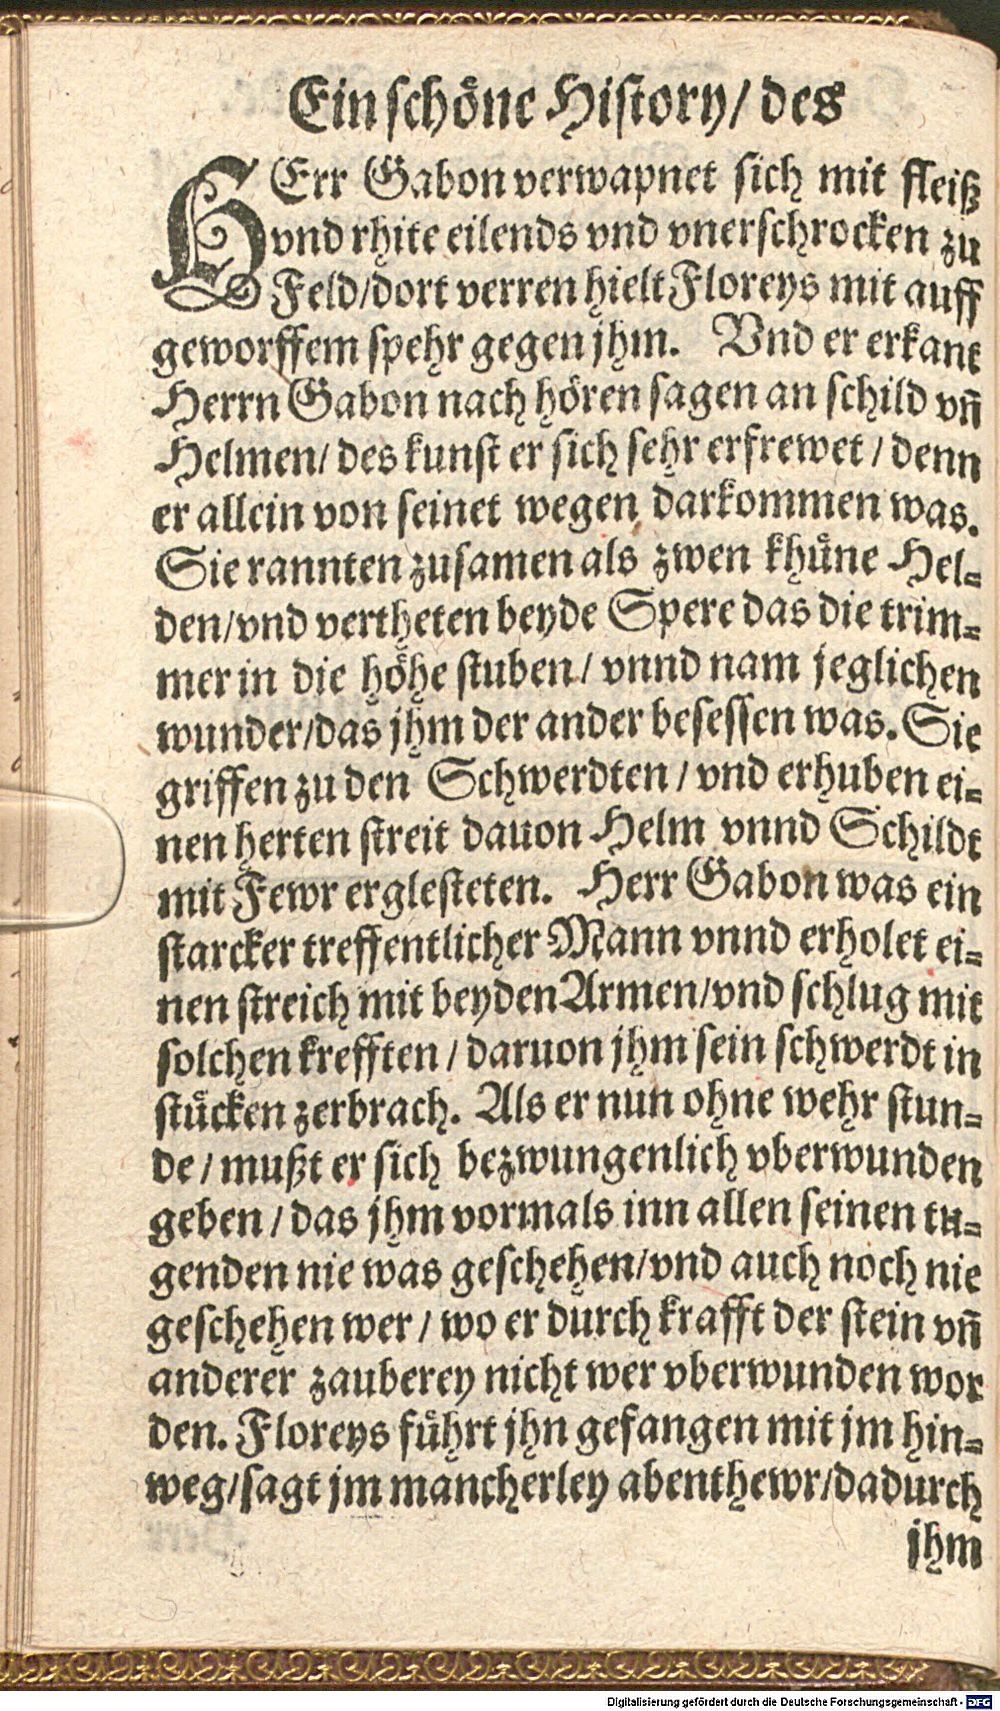 Ein schoͤne History/ des
HErr Gabon verwapnet sich mit fleiß
vnd rhite eilends vnd vnerschrocken zu
Feld/dort verren hielt Floreys mit auff
geworffem spehr gegen jhm. Vnd er erkant
Herrn Gabon nach hoͤren sagen an schild vn̄
Helmen/ des kunst er sich sehr erfrewet / denn
er allein von seinet wegen darkommen was.
Sie rannten zusamen als zwen khuͤne Hel⸗
den/vnd vertheten beyde Spere das die trim⸗
mer in die hoͤhe stuben/ vnnd nam jeglichen
wunder/das jhm der ander besessen was. Sie
griffen zu den Schwerdten / vnd erhuben ei⸗
nen herten streit dauon Helm vnnd Schildt
mit Fewr erglesteten. Herr Gabon was ein
starcker treffentlicher Mann vnnd erholet ei⸗
nen streich mit beyden Armen/vnd schlug mit
solchen krefften / daruon jhm sein schwerdt in
stuͤcken zerbrach. Als er nun ohne wehr stun⸗
de / mußt er sich bezwungenlich vberwunden
geben / das jhm vormals inn allen seinen tu⸗
genden nie was geschehen/vnd auch noch nie
geschehen wer / wo er durch krafft der stein vn̄
anderer zauberey nicht wer vberwunden wor
den. Floreys fuͤhrt jhn gefangen mit jm hin⸗
weg/sagt jm mancherley abenthewr/dadurch
jhm
Digitalisierung gefördert durch die Deutsche Forschungsgemeinschaft - DFG